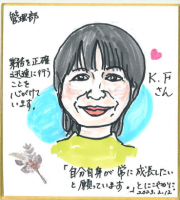 管理部
業務を正確
迅速に行う
ことを
心がけて
います。
K.F
さん
「自分自身が常に成長したい
と願っています。」とにこやかに
2023.2.12